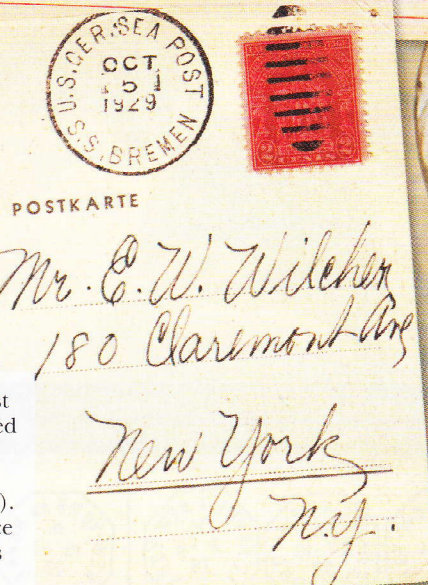 U.S. GER. SEA POST
OCT
15 1
1929
S.S. BREMEN
2 CENTS 2
POSTKARTE
Mr. E. W. Wilcher
180 Claremont Ave
New York
N.Y.
st
ed
).
ce
s